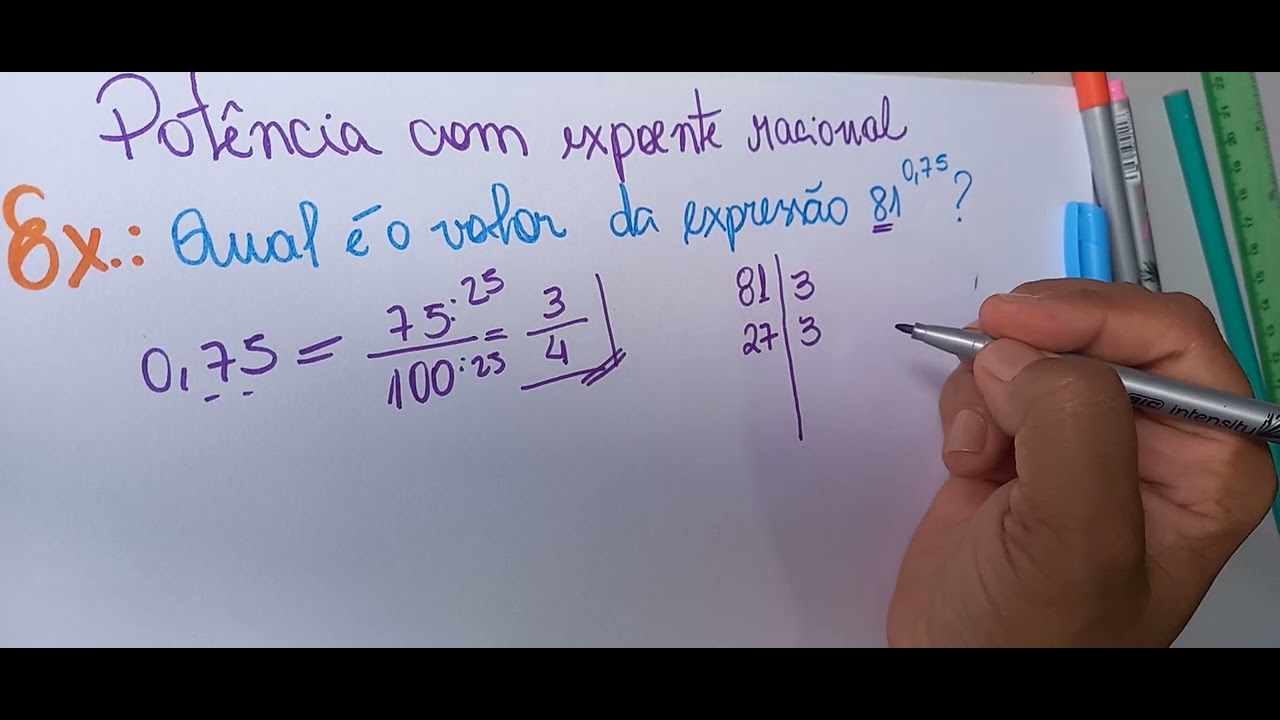 Potência com expoente racional
Ex.: Qual é o valor da expressão 81^0,75?
0,75 = 75:25/100:25 = 3/4
81 | 3
27 | 3
BIC intensity